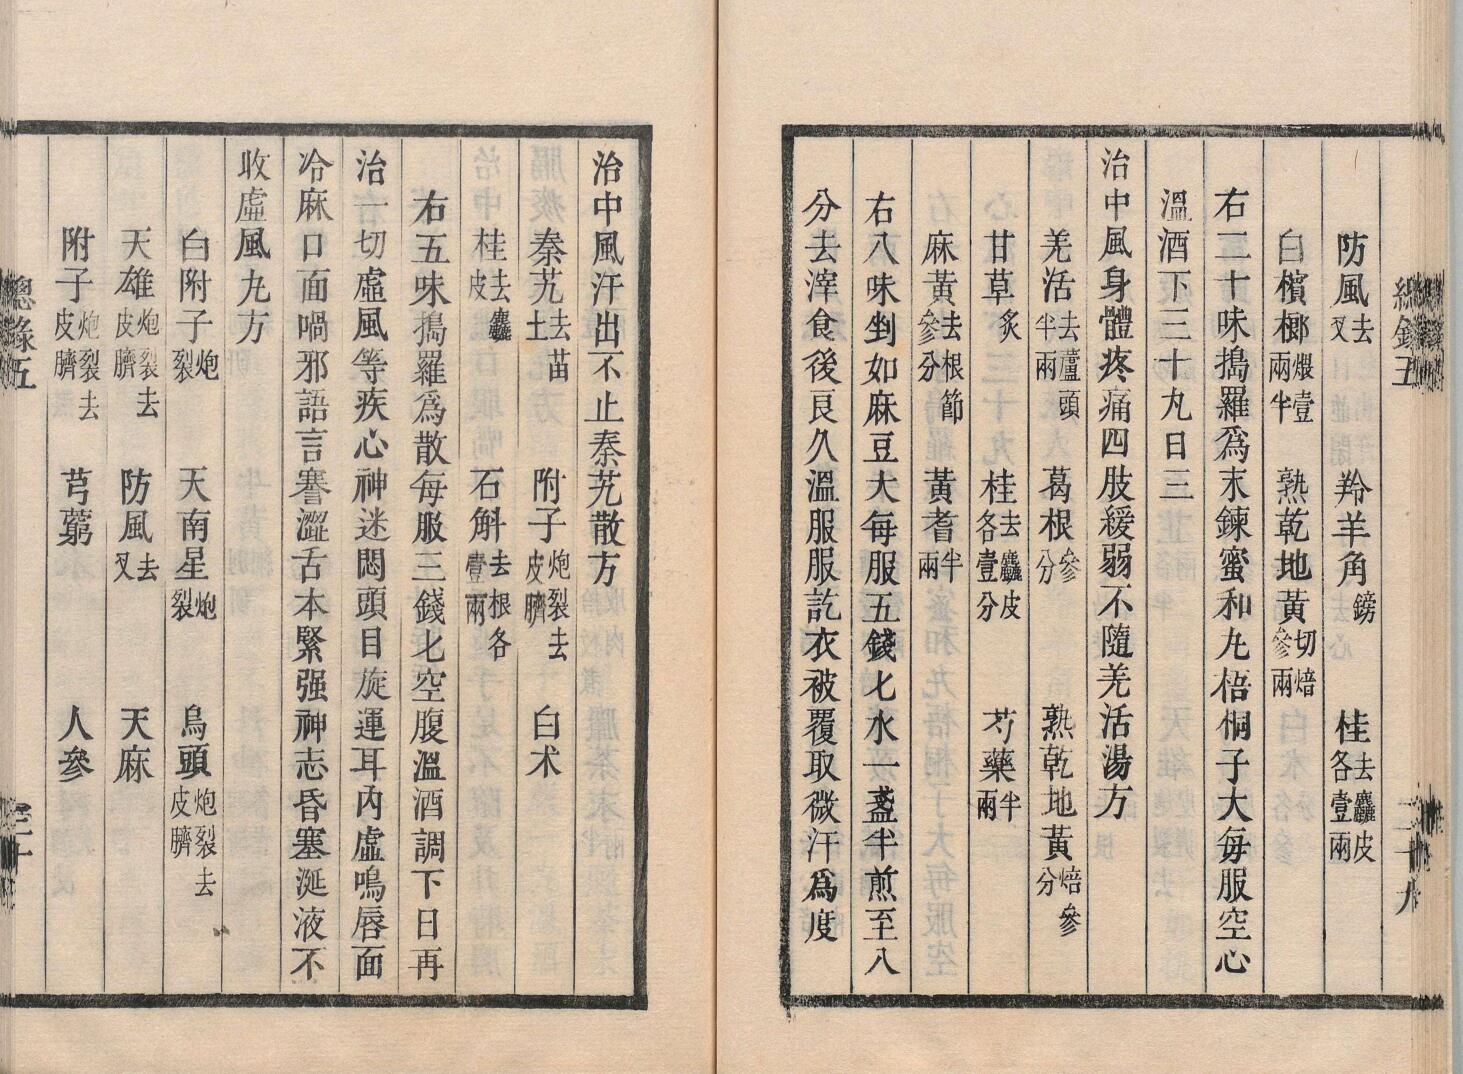 總錄五
二十九
防風去叉　羚羊角鎊　桂去麤皮各壹兩
白檳榔煨壹兩半　熟乾地黃切焙參兩
右二十味搗羅爲末鍊蜜和丸梧桐子大每服空心
溫酒下三十丸日三
治中風身體疼痛四肢緩弱不隨羌活湯方
羌活去蘆頭半兩　葛根參分　熟乾地黃焙參分
甘草炙　桂去麤皮各壹分　芍藥半兩
麻黃去根節參分　黃耆半兩
右八味剉如麻豆大每服五錢匕水一盞半煎至八
分去滓食後良久溫服服訖衣被覆取微汗爲度
治中風汗出不止秦艽散方
秦艽去苗土　附子炮裂去皮臍　白术
桂去麤皮　石斛去根各壹兩
右五味搗羅爲散每服三錢匕空腹溫酒調下日再
治一切虛風等疾心神迷悶頭目旋運耳內虛鳴唇面
冷麻口面喎邪語言謇澀舌本緊强神志昏塞涎液不
收虛風丸方
白附子炮裂　天南星炮裂　烏頭炮裂去皮臍
天雄炮裂去皮臍　防風去叉　天麻
附子炮裂去皮臍　芎藭　人參
總錄五
三十